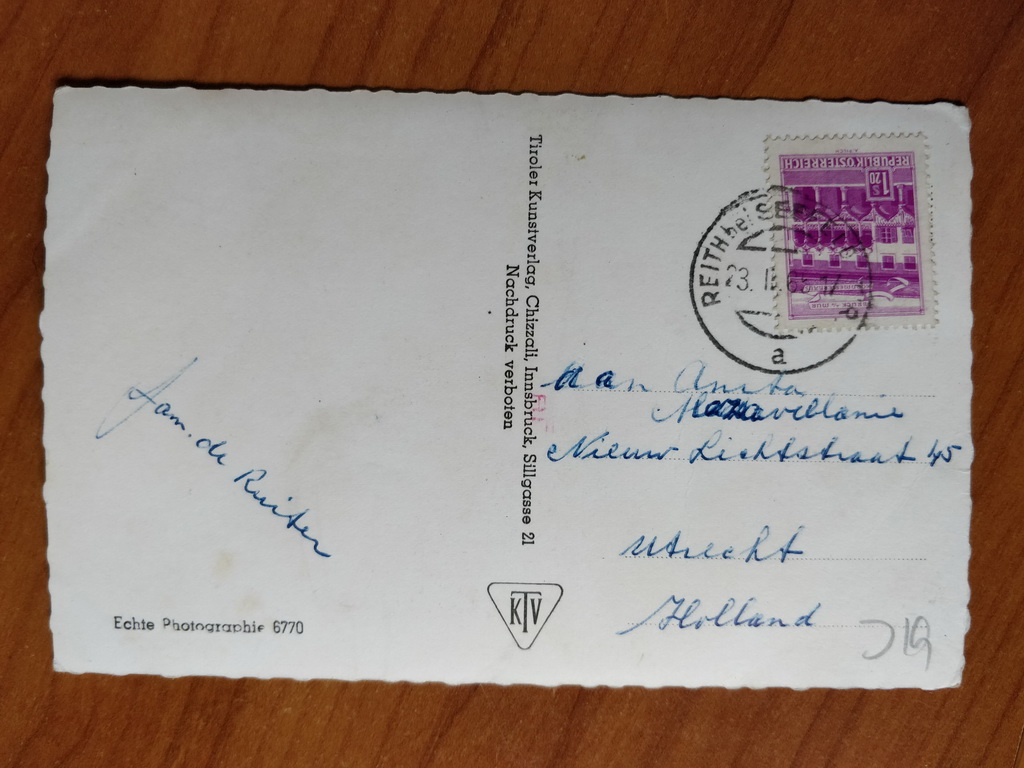 Fam. de Ruiter
Echte Photographie 6770
Tiroler Kunstverlag, Chizzali, Innsbruck, Sillgasse 21
Nachdruck verboten
KTV
REPUBLIK ÖSTERREICH
S 1.20
REITH bei SEEFELD
23.
a
aan Anita
Nieuw Lichtstraat 45
Utrecht
Holland